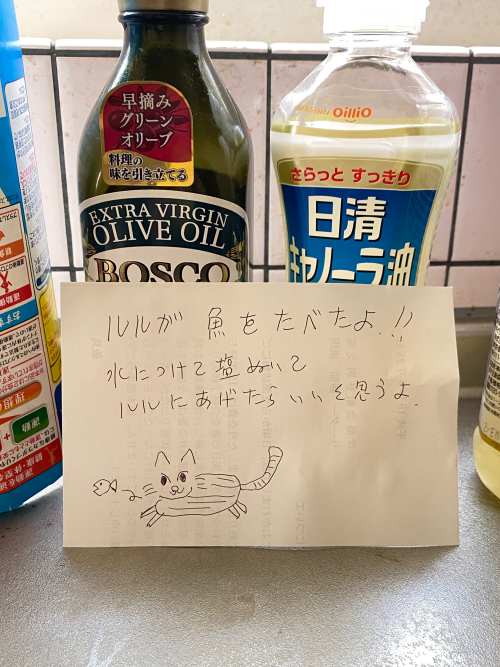 早摘み
グリーン
オリーブ
料理の
味を引き立てる
EXTRA VIRGIN
OLIVE OIL
BOSCO
OilliO
さらっと すっきり
日清
キャノーラ油
ルルが 魚をたべたよ!!
水につけて塩ぬいて
ルルにあげたらいいと思うよ.